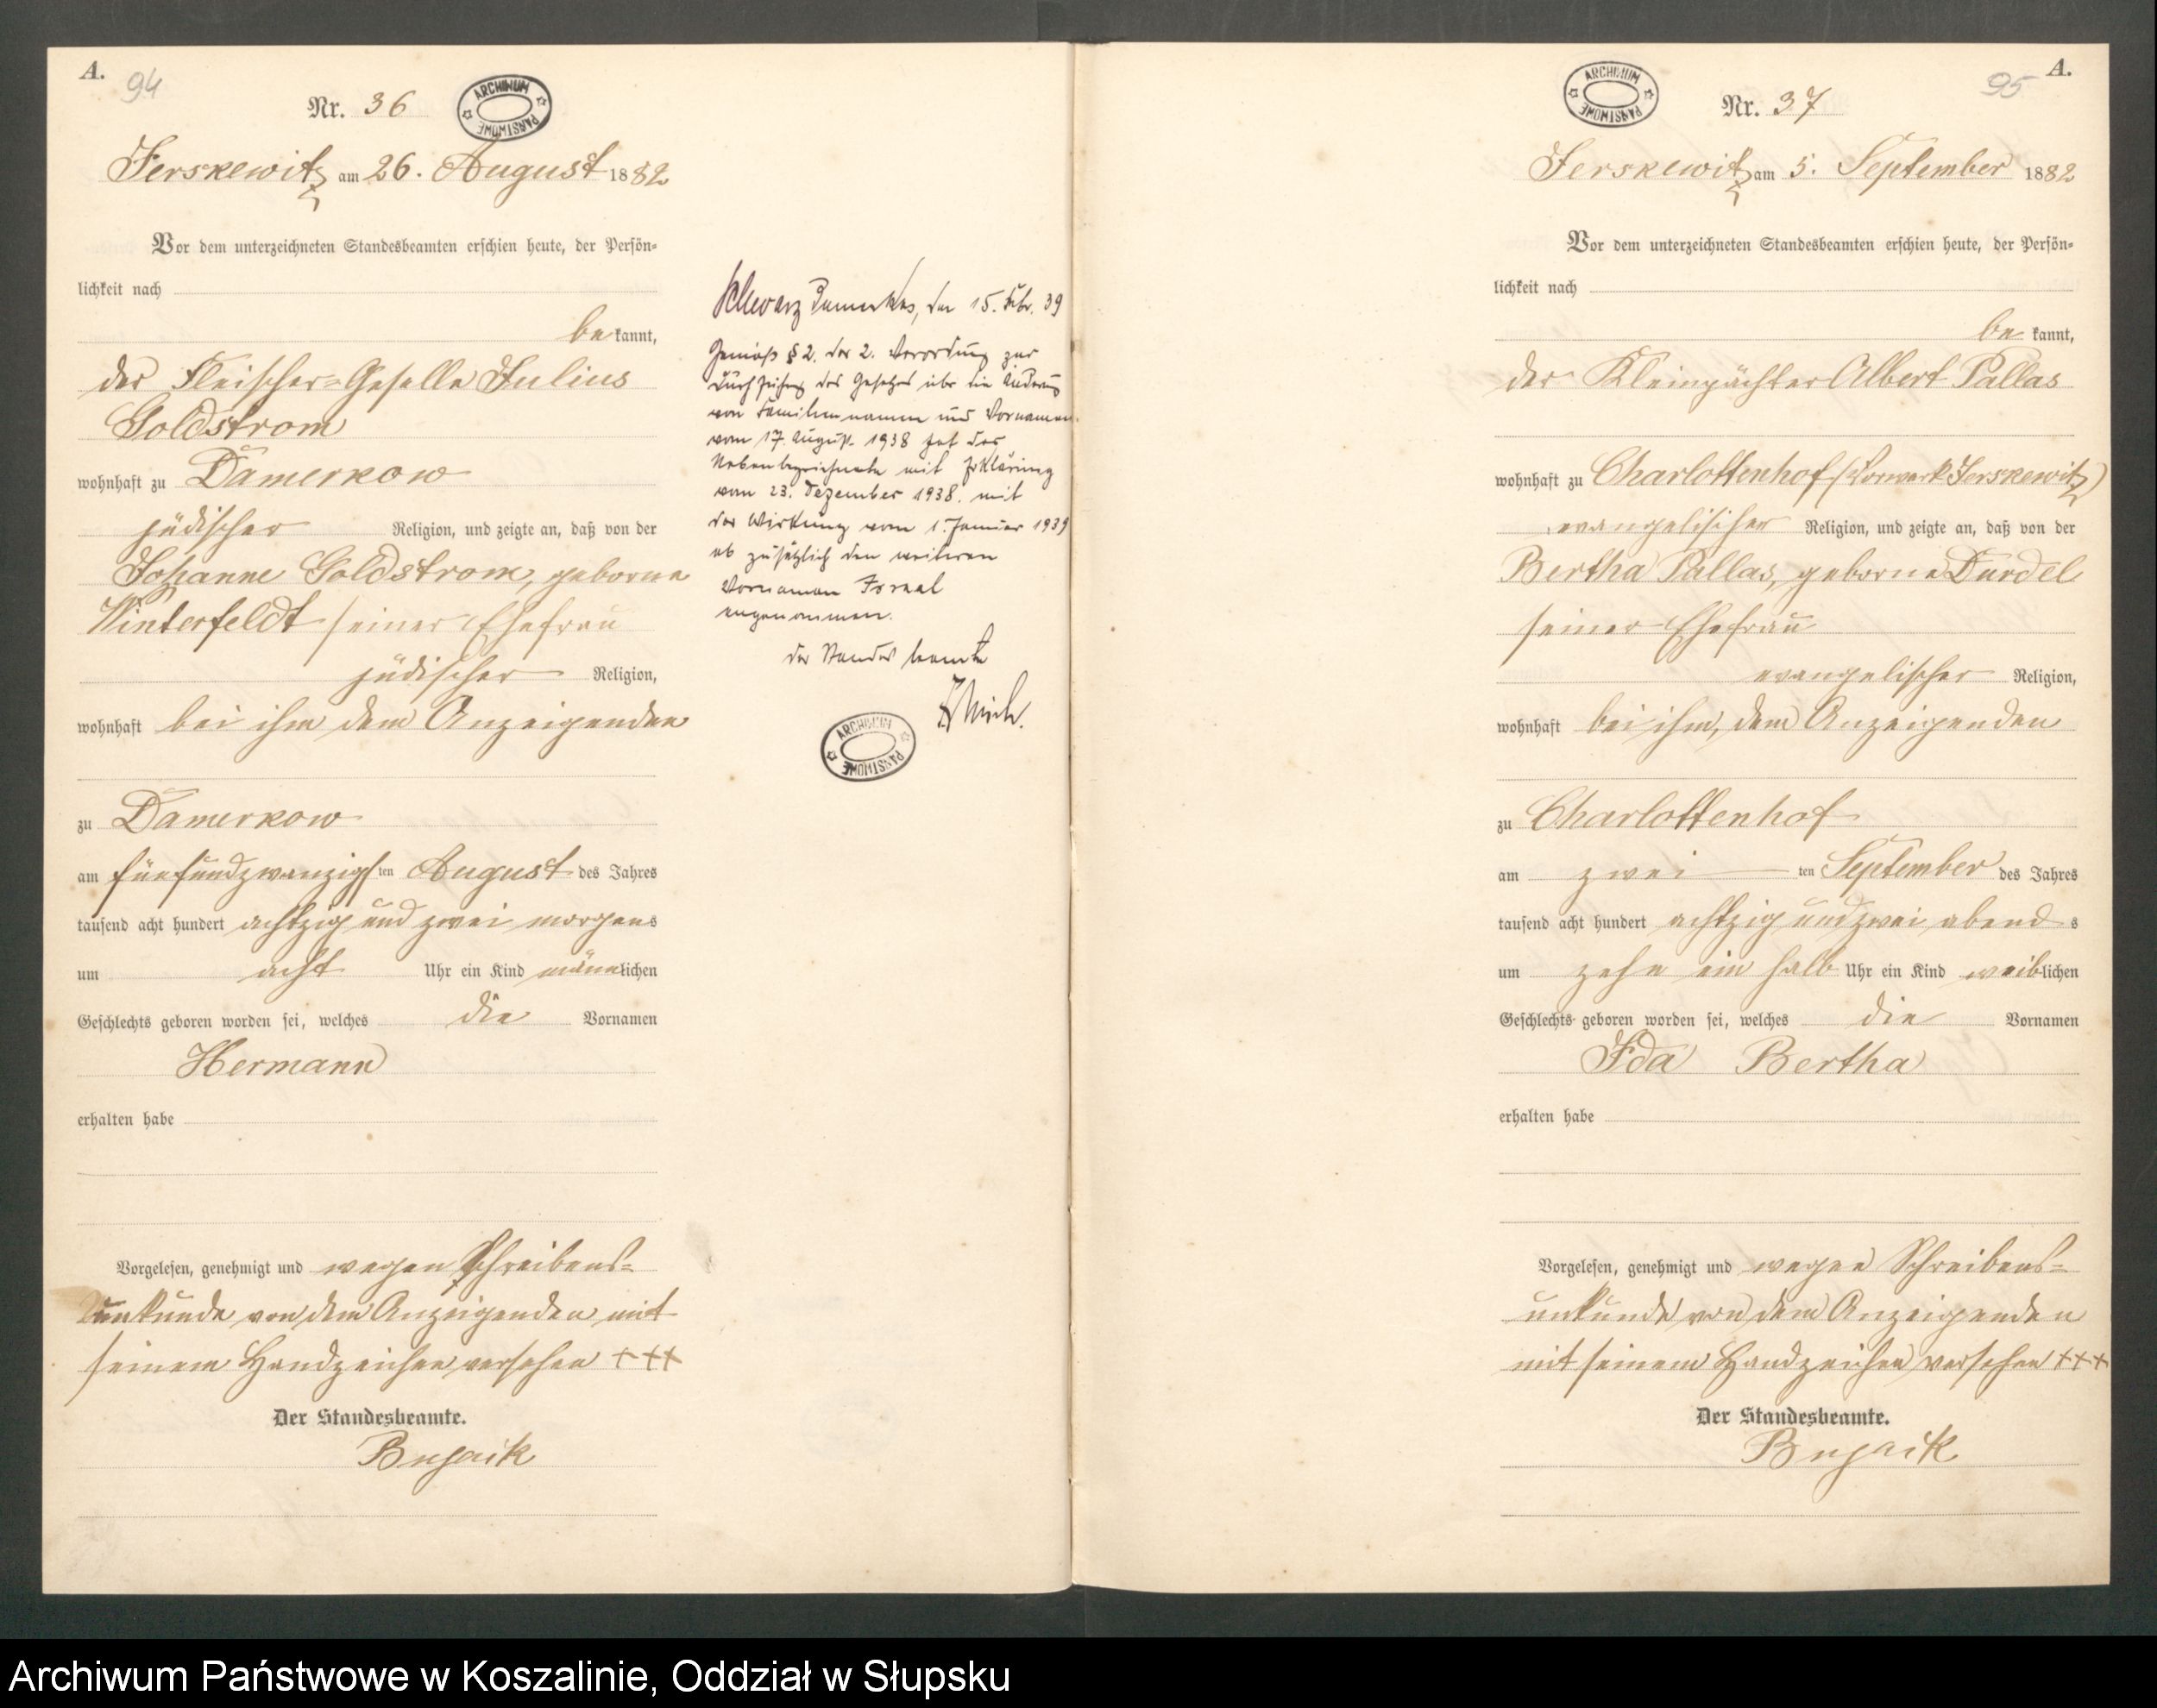 A.
94
Nr. 36
ARCHIWUM PAŃSTWOWE
Jerskewitz am 26. August 1882
Vor dem unterzeichneten Standesbeamten erschien heute, der Persön-
lichkeit nach
bekannt,
der Fleischer-Geselle Julius
Goldstrom
wohnhaft zu Damerkow
jüdischer Religion, und zeigte an, daß von der
Johanne Goldstrom, geborne
Winterfeldt seiner Ehefrau
jüdischer Religion,
wohnhaft bei ihm dem Anzeigenden
zu Damerkow
am fünfundzwanzigsten August des Jahres
tausend acht hundert achtzig und zwei morgens
um acht Uhr ein Kind männlichen
Geschlechts geboren worden sei, welches die Vornamen
Hermann
erhalten habe
Vorgelesen, genehmigt und wegen Schreibens-
unkunde von dem Anzeigenden mit
seinem Handzeichen versehen +++
Der Standesbeamte.
Schwarz Damerkow, den 15. Febr. 39
Gemäß § 2. der 2. Verordnung zur
Durchführung des Gesetzes über die Änderung
von Familiennamen und Vornamen
vom 17. August 1938 hat der
Nebenbezeichnete mit Erklärung
vom 23. Dezember 1938. mit
der Wirkung vom 1. Januar 1939
ab zusätzlich den weiteren
Vornamen Israel
angenommen.
der Standesbeamte
ARCHIWUM PAŃSTWOWE
A.
95
ARCHIWUM PAŃSTWOWE
Nr. 37
Jerskewitz am 5. September 1882
Vor dem unterzeichneten Standesbeamten erschien heute, der Persön-
lichkeit nach
be kannt,
der Kleinpächter Albert Pallas
wohnhaft zu Charlottenhof (Vorwerk Jerskewitz)
evangelischer Religion, und zeigte an, daß von der
Bertha Pallas, geborne Durdel
seiner Ehefrau
evangelischer Religion,
wohnhaft bei ihm, dem Anzeigenden
zu Charlottenhof
am zwei ten September des Jahres
tausend acht hundert achtzig und zwei abend s
um zehn ein halb Uhr ein Kind weiblichen
Geschlechts geboren worden sei, welches die Vornamen
Ida Bertha
erhalten habe
Vorgelesen, genehmigt und wegen Schreibens-
unkunde von dem Anzeigenden
mit seinem Handzeichen versehen +++
Der Standesbeamte.
Archiwum Państwowe w Koszalinie, Oddział w Słupsku